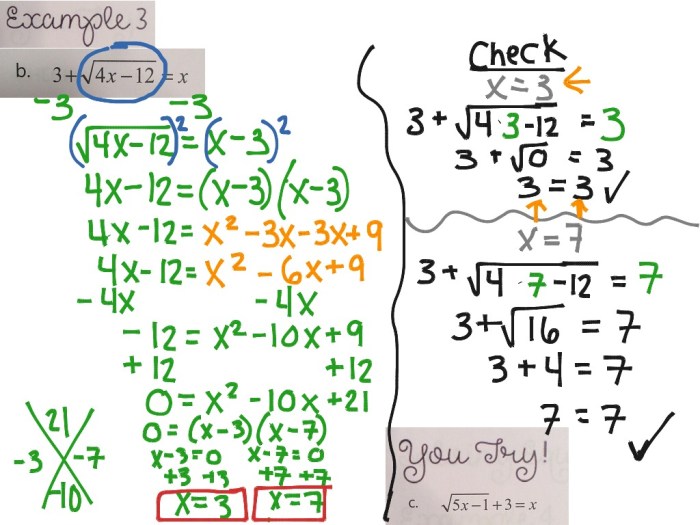 Example 3
b. 3+√(4x−12) = x
-3 -3
(√(4x-12))² = (x-3)²
4x-12=(x-3)(x-3)
4x-12= x² -3x-3x+9
4x-12= x² - 6x+9
-4x -4x
-12 = x² -10x+9
+12 +12
0= x² -10x +21
0= (x-3)(x-7)
x-3=0 x-7=0
+3 +3 +7 +7
x=3 x=7
21
-3 -7
-10
Check
x=3 ←
3+√(4·3-12) = 3
3+√0 = 3
3=3 ✓
x=7
3+√(4·7-12) = 7
3+√16 = 7
3+4=7
7=7 ✓
You Try!
c. √(5x−1)+3=x